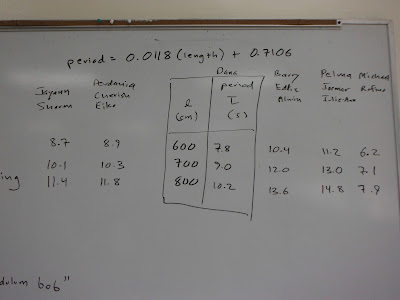 period = 0.0118 (length) + 0.7106
Dana
Jayson Barry Pelma Michael
Sharm Cherish Eddie Jesmar Rufino
Eiko Alwin
l period
(cm) T
(s)
8.7 8.9 600 7.8 10.4 11.2 6.2
10.1 10.3 700 9.0 12.0 13.0 7.1
ing 11.4 11.8 800 10.2 13.6 14.8 7.9
dulum bob"